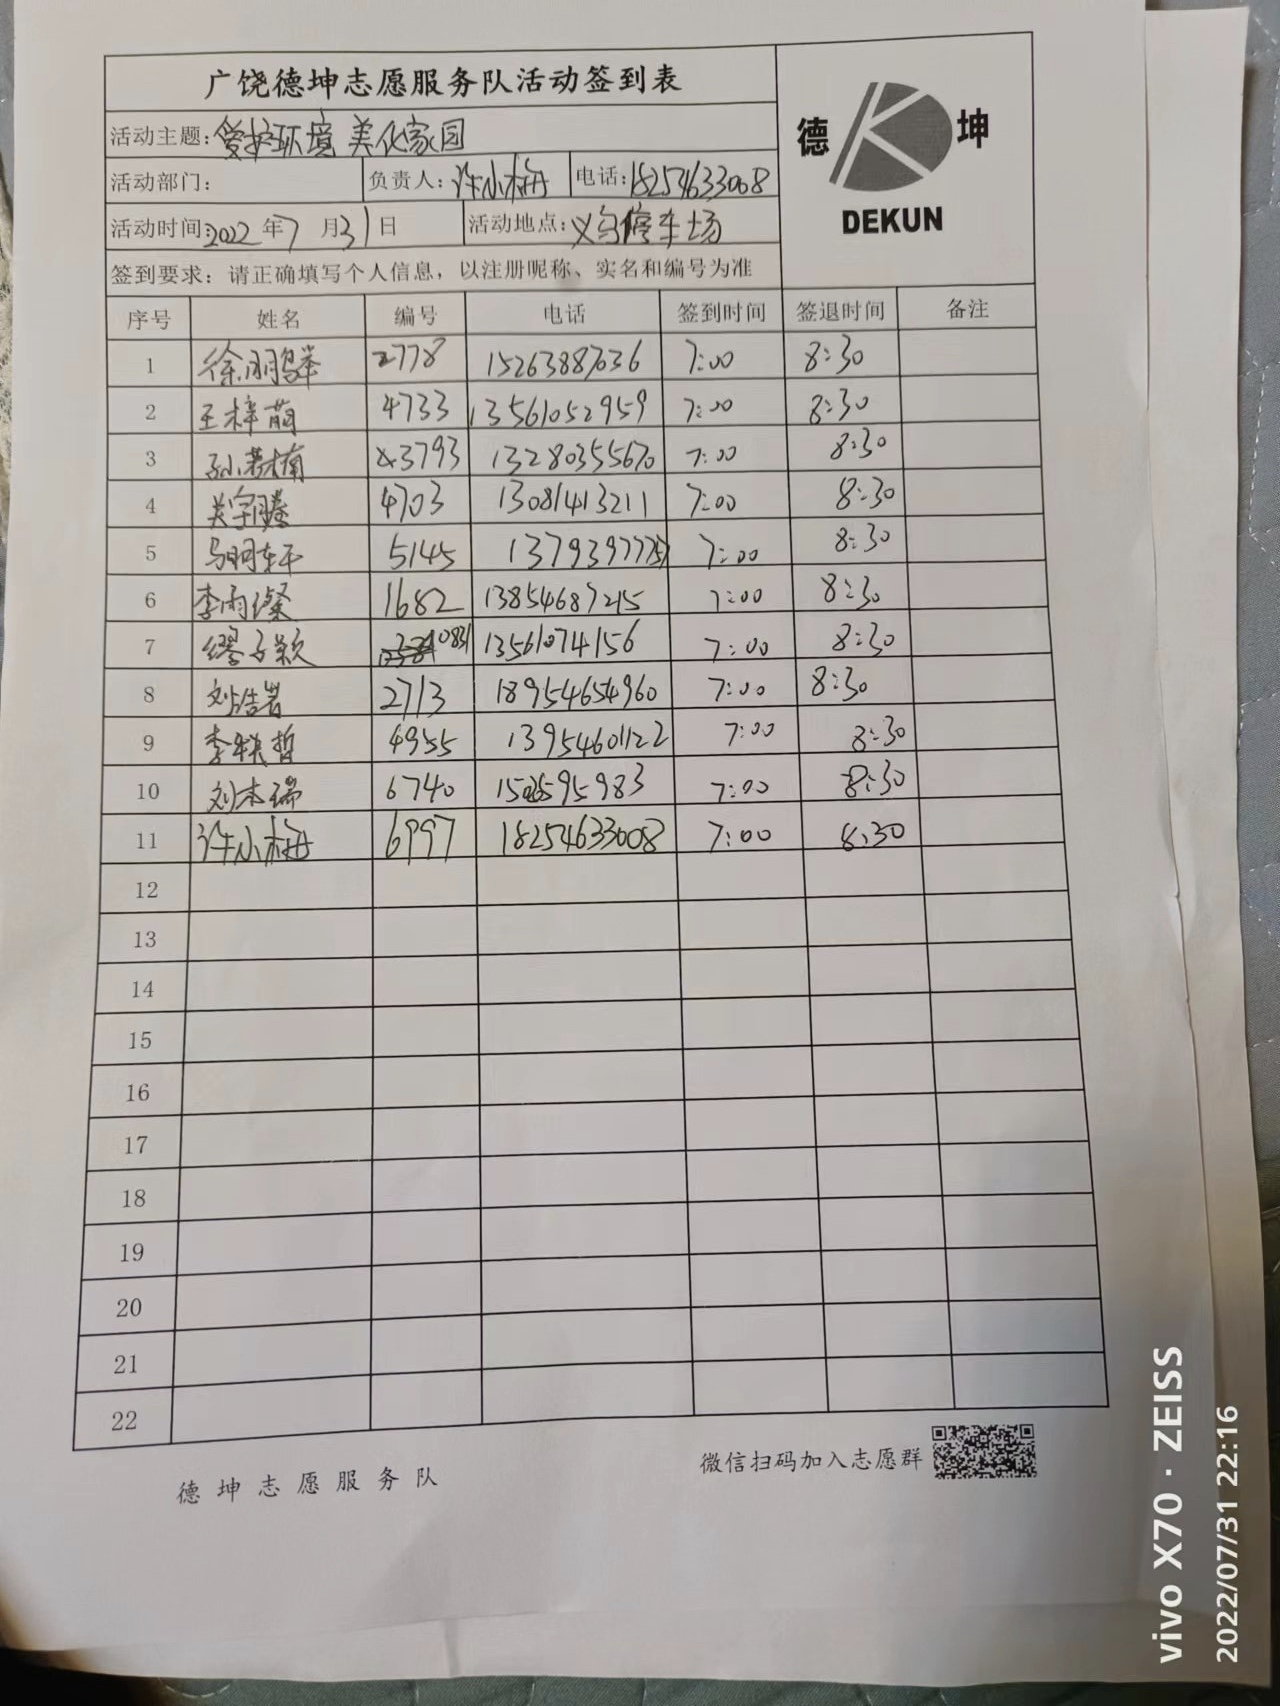 广饶德坤志愿服务队活动签到表
德 坤
DEKUN
活动主题:爱护环境 美化家园
活动部门: 负责人:许小梅 电话:18254633008
活动时间:2022年7月31日 活动地点:义乌停车场
签到要求:请正确填写个人信息,以注册昵称、实名和编号为准
序号 姓名 编号 电话 签到时间 签退时间 备注
1 徐翊鸣举 2778 15263887636 7:00 8:30
2 王梓萌 4733 13561052959 7:00 8:30
3 孙若楠 3793 13280355670 7:00 8:30
4 关宇腾 4703 13081413211 7:00 8:30
5 马翊轩 5145 7:00 8:30
6 李雨燦 1682 13854687215 7:00 8:30
7 缪子颖 0831 13561074156 7:00 8:30
8 刘浩岩 2713 18954654960 7:00 8:30
9 李轶哲 4955 13954601122 7:00 8:30
10 刘本瑞 6740 7:00 8:30
11 许小梅 6997 18254633008 7:00 8:30
12
13
14
15
16
17
18
19
20
21
22
德坤志愿服务队
微信扫码加入志愿群
vivo X70 · ZEISS
2022/07/31 22:16